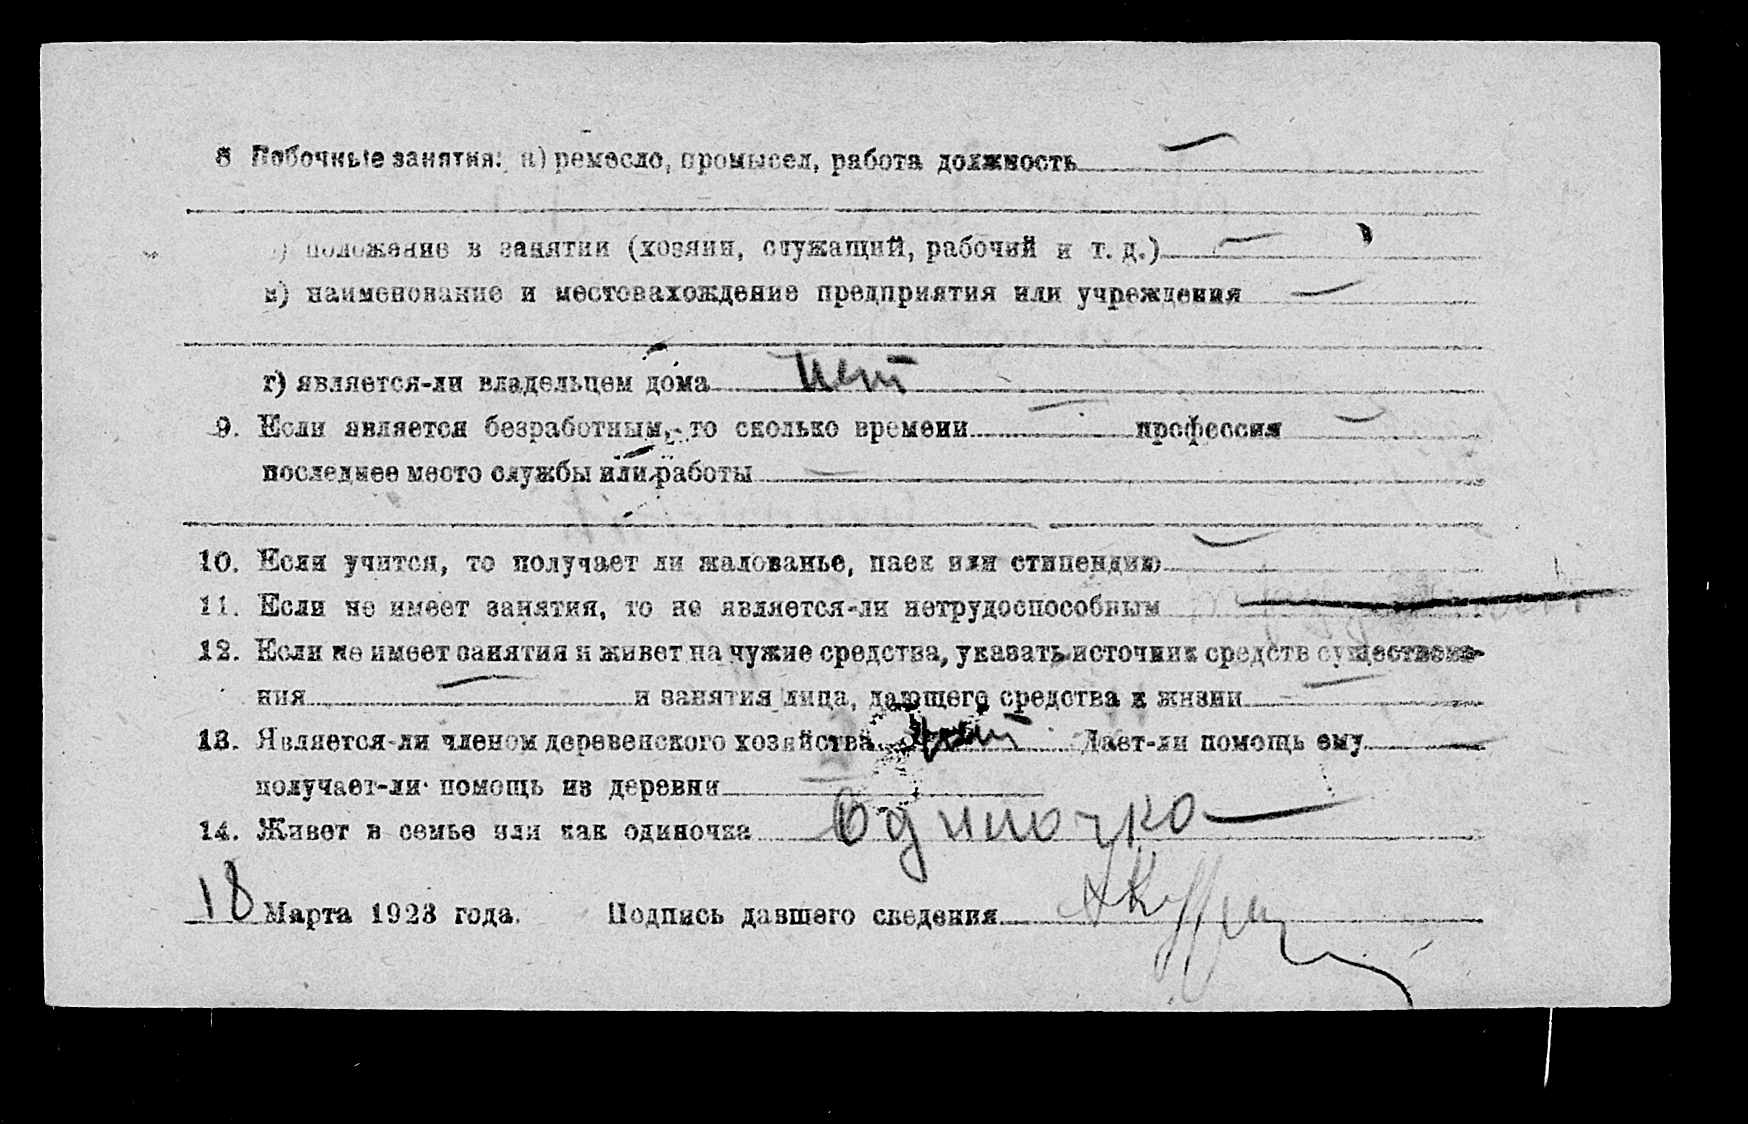 8 Побочные занятия: а) ремесло, промысел, работа должность —
) положение в занятии (хозяин, служащий, рабочий и т. д.) —
в) наименование и местонахождение предприятия или учреждения —
г) является-ли владельцем дома нет
9. Если является безработным, то сколько времени — профессия —
последнее место службы или работы —
10. Если учится, то получает ли жалованье, паек или стипендию —
11. Если не имеет занятия, то не является-ли нетрудоспособным —
12. Если не имеет занятия и живет на чужие средства, указать источник средств существова-
ния — и занятия лица, дающего средства к жизни —
13. Является-ли членом деревенского хозяйства нет Дает-ли помощь ему —
получает-ли помощь из деревни
14. Живет в семье или как одиночка Одиночка
18 Марта 1923 года. Подпись давшего сведения